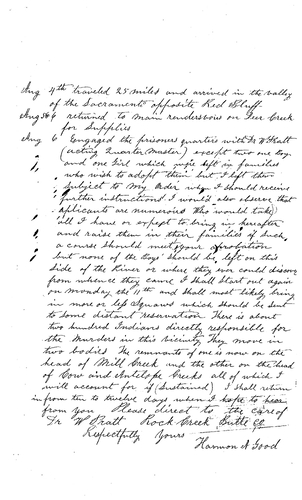 Aug 4th traveled 25 miles and arrived in the valley
of the Sacramento opposite Red Bluff
Aug 5th returned to main rendesvois on Deer Creek
for Supplies
Aug 6 Engaged the prisoners quarters with Dr W Pratt
(acting Quarter Master) except two one boy
and one Girl which were left in families
who wish to adopt them but I left them
subject to my order when I should receive
further instructions I would also observe that
applicants are numerous who would take
all I have or expect to bring in hereafter
and raise them in their families if such
a course should meet your aprobation
but none of the Boys should be left on this
side of the River or where they ever could discover
from whence they came I shall start out again
on Monday the 11th and shall most likely bring
in more or less Squaws which should be sent
to some distant reservation There is about
two hundred Indians directly responsible for
the Murders in this vicinity They move in
two bodies The remnants of one is now on the
head of Mill Creek and the other on the head
of Cow and Antelope Creeks all of which I
will account for if (Sustained) I shall return
in from ten to twelve days when I hope to hear
from you Please direct to the care of
Dr W Pratt Rock Creek Butte Co
Respectfully Yours
Harmon A Good